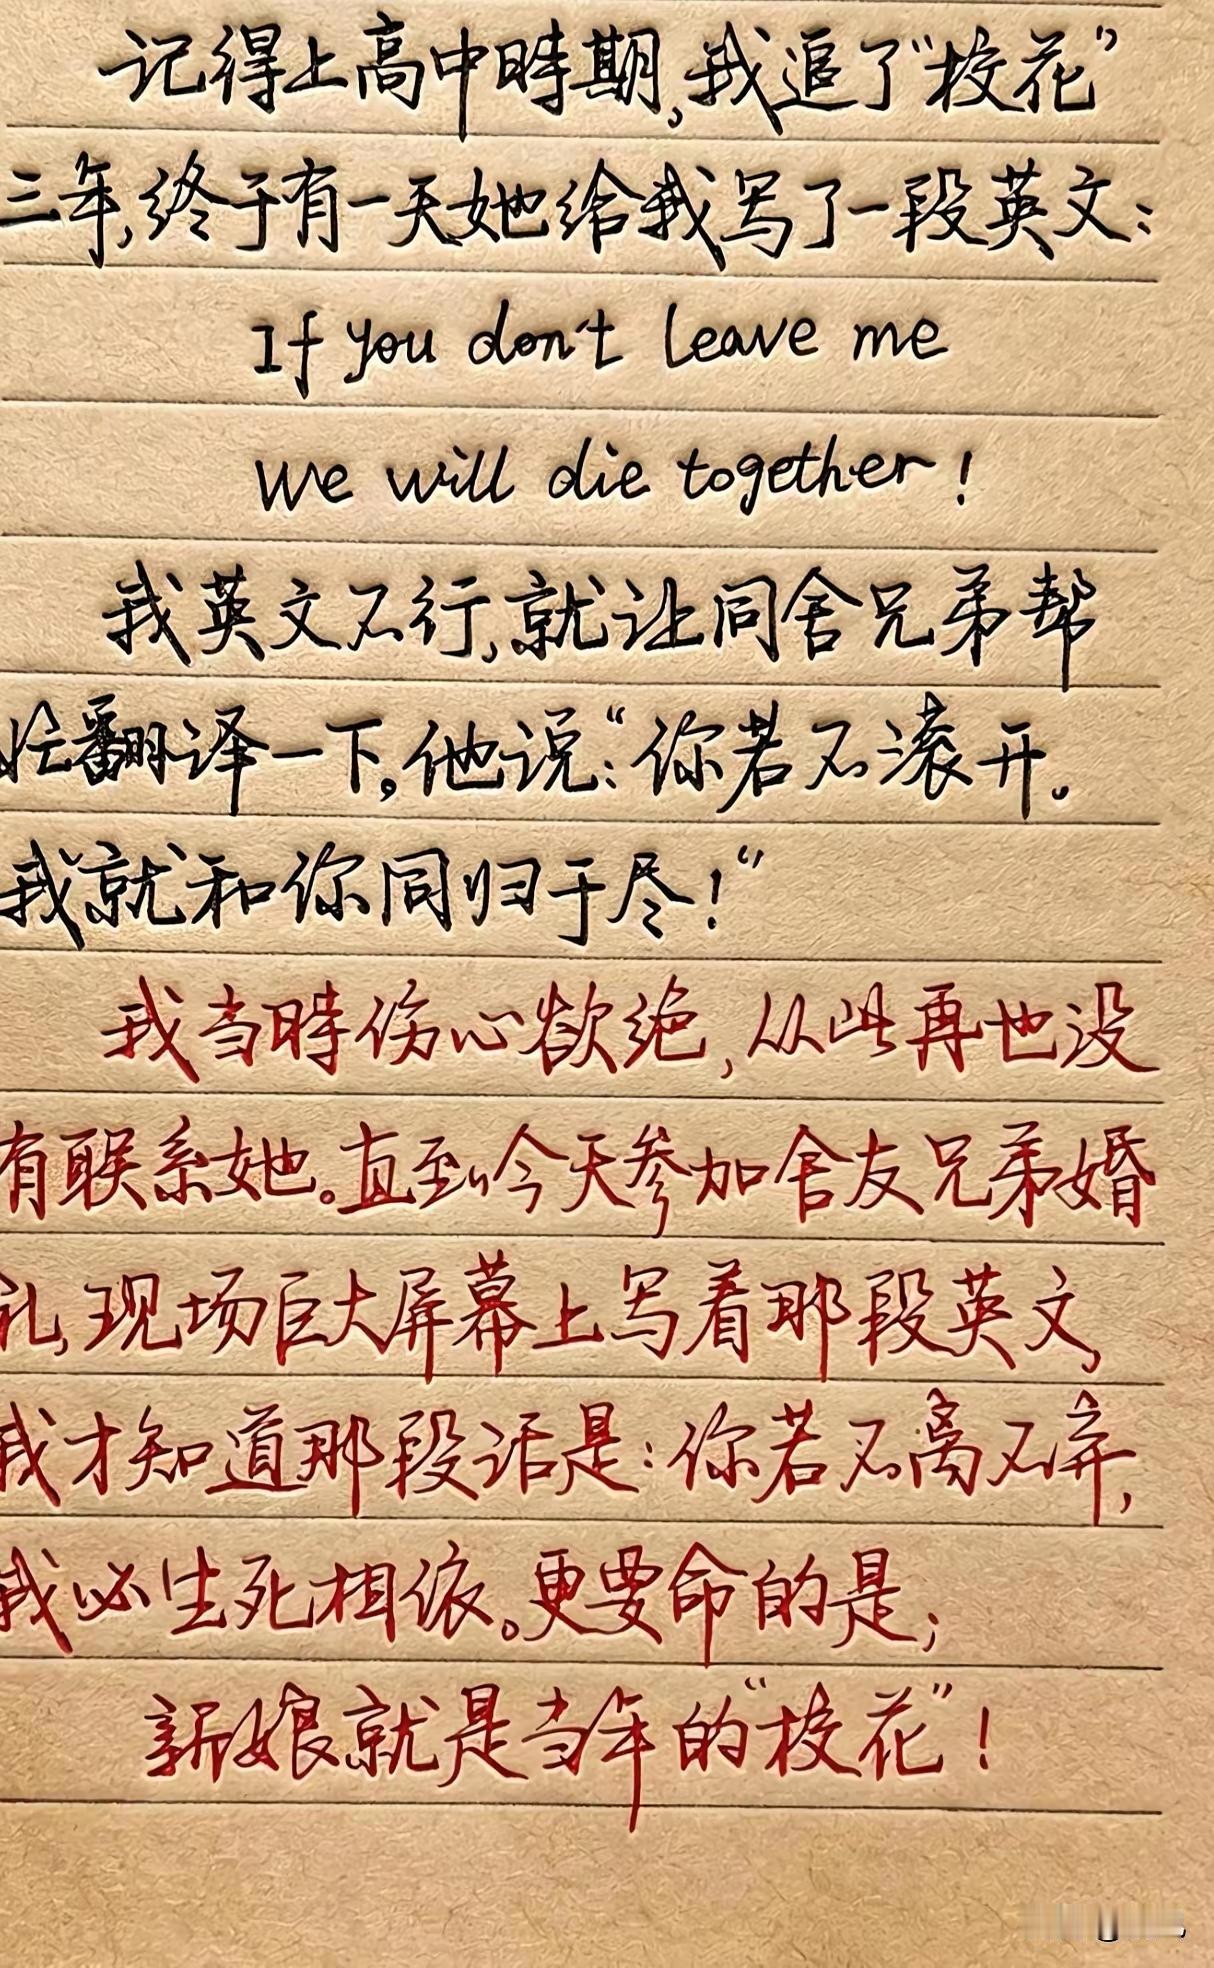 记得上高中时期,我追了“校花”
三年,终于有一天她给我写了一段英文:
If you don't leave me
we will die together!
我英文不行,就让同舍兄弟帮
忙翻译一下。他说:“你若不滚开。
我就和你同归于尽!“
我当时伤心欲绝,从此再也没
有联系她。直到今天参加舍友兄弟婚
礼,现场巨大屏幕上写着那段英文,
我才知道那段话是:你若不离不弃,
我必生死相依。更要命的是;
新娘就是当年的“校花”!